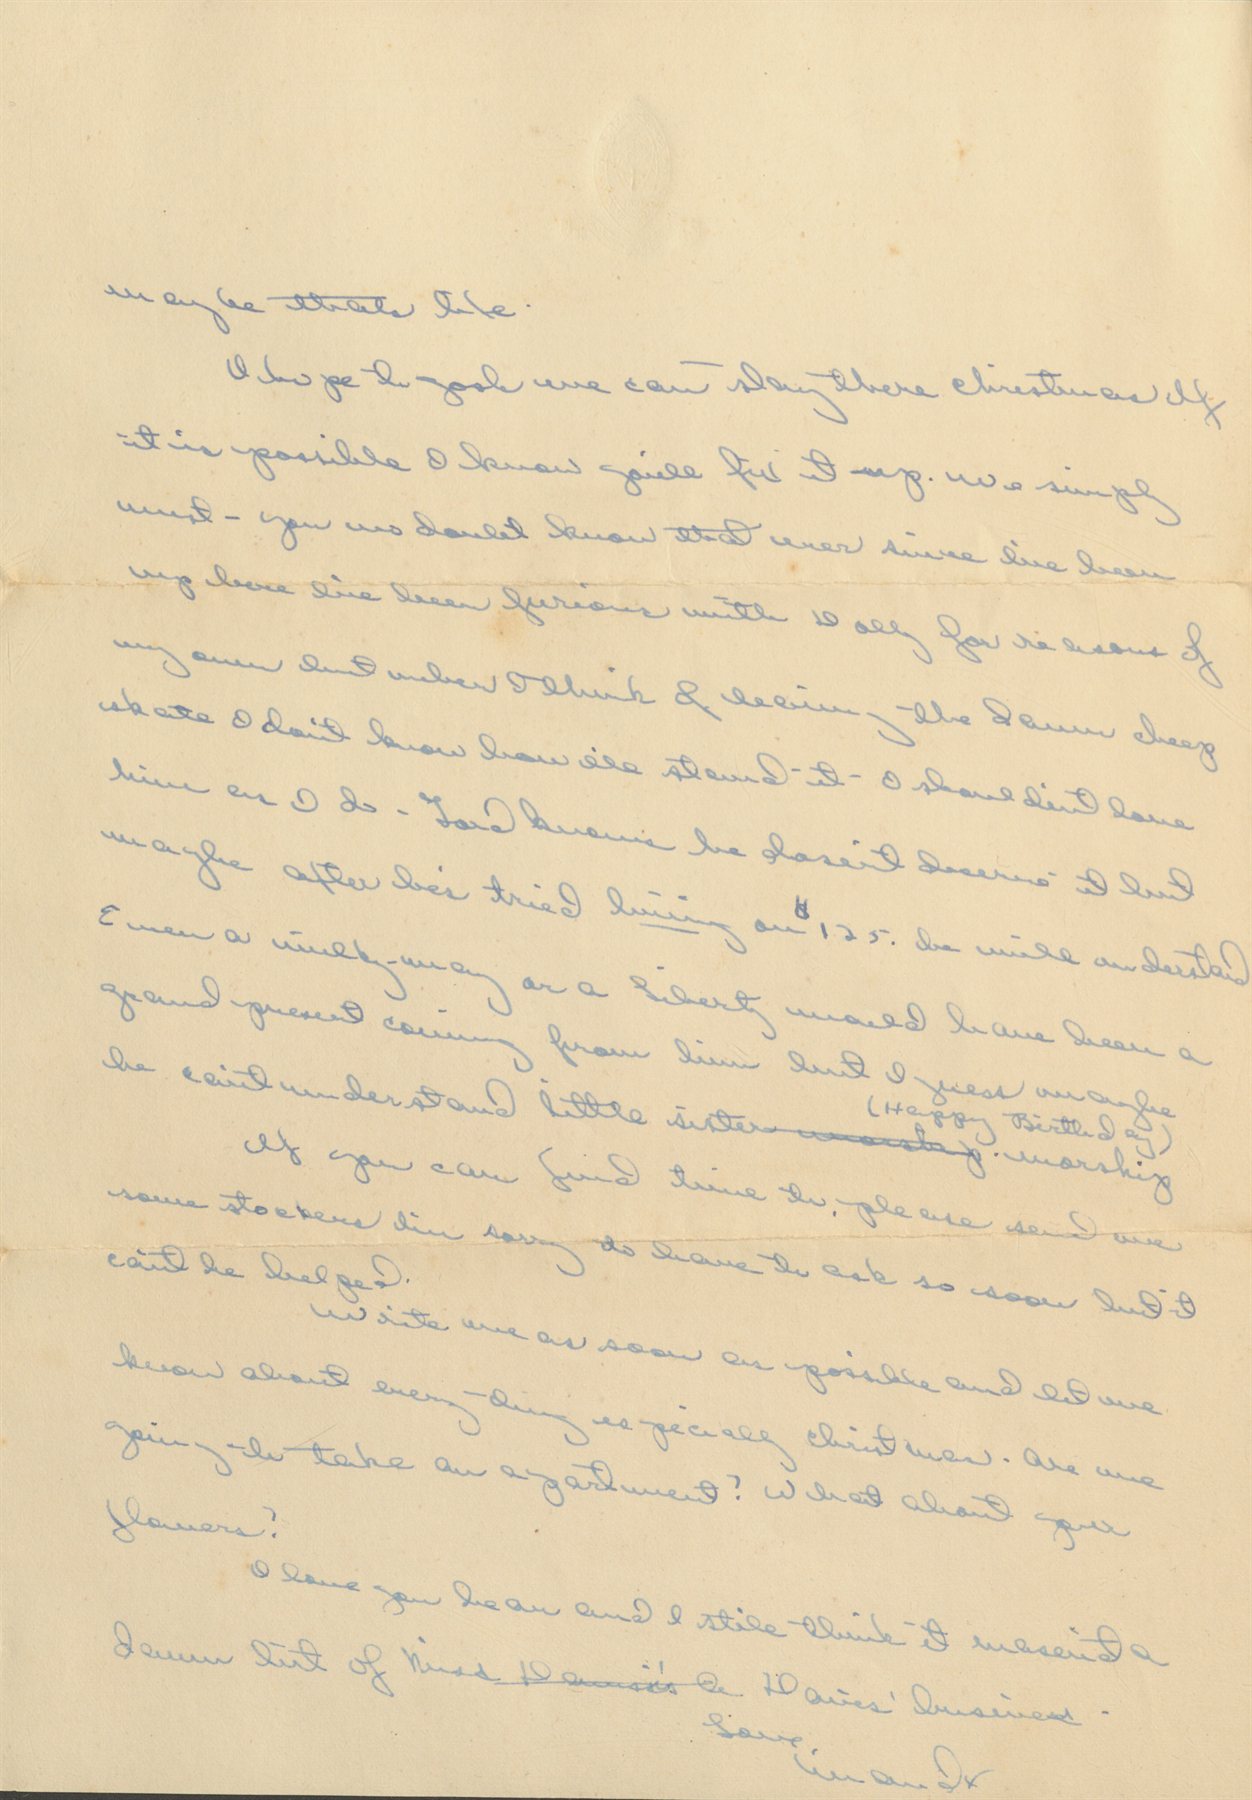 maybe thats life.
I hope to gosh we can stay there christmas If
it is possible I know you'll fix it up. We simply
must - you no doubt know that ever since I've been
up here I've been furious with Dolly for reasons of
my own but when I think of leaving the damn cheap
skate I don't know how I'll stand it - I shouldn't love
him as I do - Lord knows he dosen't deserve it but
maybe after he's tried living on $125. he will understand
Even a milky-way or a Liberty would have been a
grand present coming from him but I guess maybe
(Happy Birthday)
he can't understand little sister worship. worship
If you can find time to, please send me
some stockens I'm sorry to have to ask so soon but it
can't be helped.
Write me as soon as possible and let me
know about every-thing especially christmas. Are we
going to take an apartment? What about your
flowers?
I love you hear and I still think it wasen't a
damn bit of Miss Davis's Davies' business.
Love,